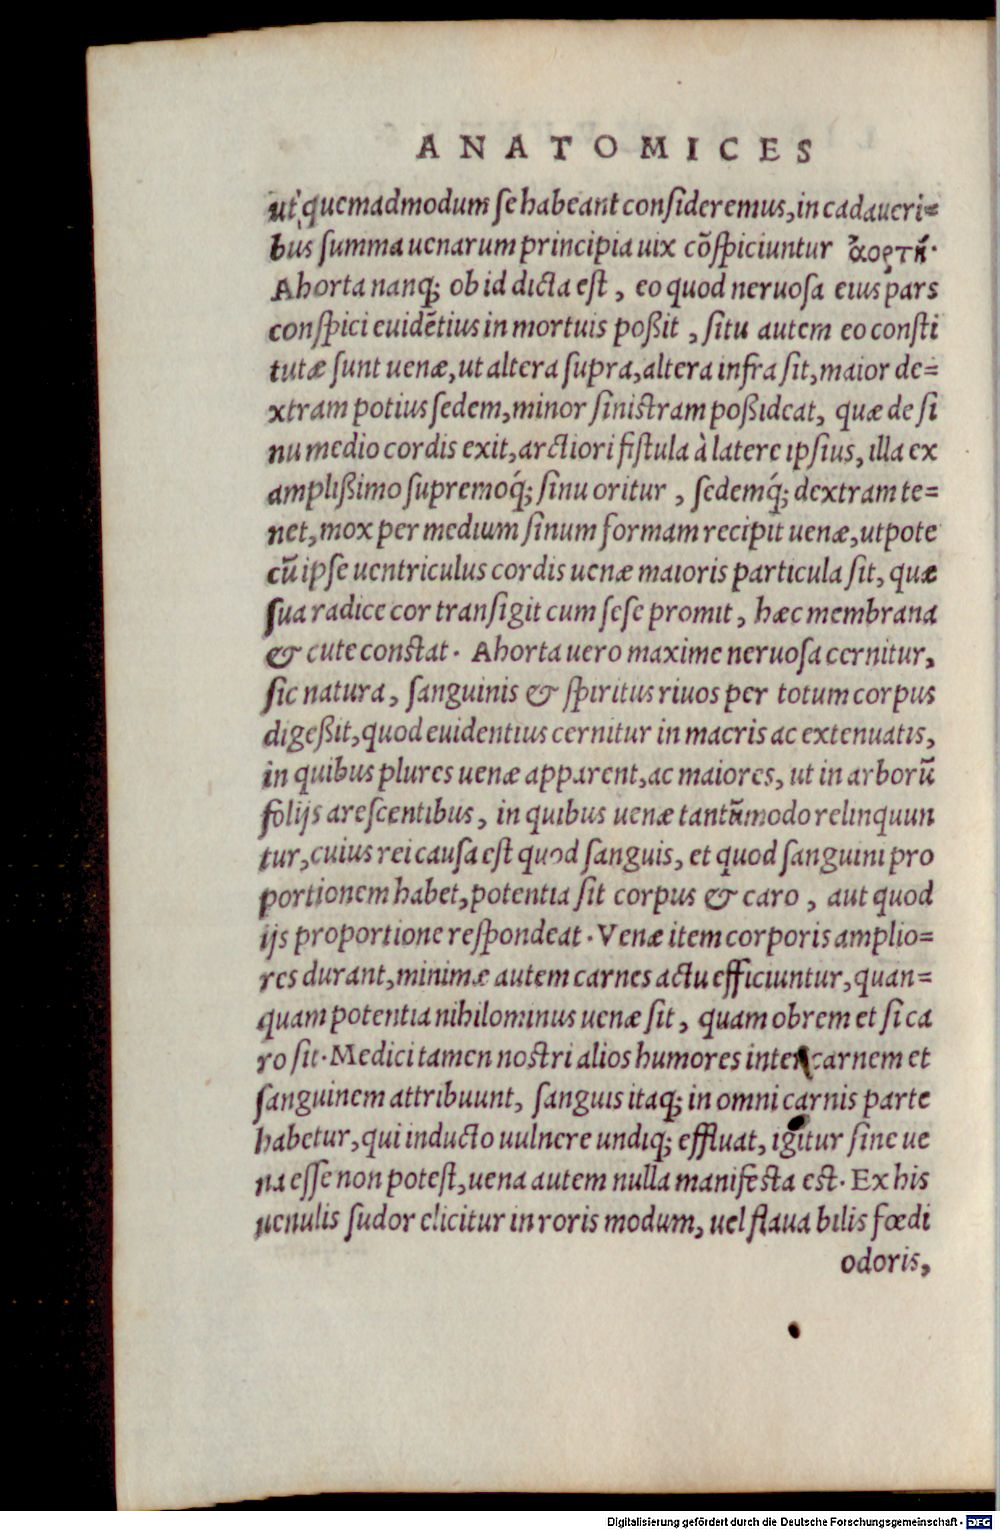 ANATOMICES
ut quemadmodum se habeant consideremus, in cadaueri=
bus summa uenarum principia uix cõspiciuntur ἀορτή.
Ahorta nanq; ob id dicta est, eo quod neruosa eius pars
conspici euidẽtius in mortuis poßit, situ autem eo consti
tutæ sunt uenæ, ut altera supra, altera infra sit, maior de=
xtram potius sedem, minor sinistram poßideat, quæ de si
nu medio cordis exit, arctiori fistula à latere ipsius, illa ex
amplißimo supremoq́; sinu oritur, sedemq́; dextram te=
net, mox per medium sinum formam recipit uenæ, utpote
cũ ipse uentriculus cordis uenæ maioris particula sit, quæ
sua radice cor transigit cum sese promit, hæc membrana
& cute constat. Ahorta uero maxime neruosa cernitur,
sic natura, sanguinis & spiritus riuos per totum corpus
digeßit, quod euidentius cernitur in macris ac extenuatis,
in quibus plures uenæ apparent, ac maiores, ut in arborũ
folijs arescentibus, in quibus uenæ tantũmodo relinquun
tur, cuius rei causa est quod sanguis, et quod sanguini pro
portionem habet, potentia sit corpus & caro, aut quod
ijs proportione respondeat. Venæ item corporis amplio=
res durant, minimæ autem carnes actu efficiuntur, quan=
quam potentia nihilominus uenæ sit, quam obrem et si ca
ro sit. Medici tamen nostri alios humores inter carnem et
sanguinem attribuunt, sanguis itaq; in omni carnis parte
habetur, qui inducto uulnere undiq; effluat, igitur sine ue
na esse non potest, uena autem nulla manifesta est. Ex his
uenulis sudor elicitur in roris modum, uel flaua bilis fœdi
odoris,
Digitalisierung gefördert durch die Deutsche Forschungsgemeinschaft - DFG